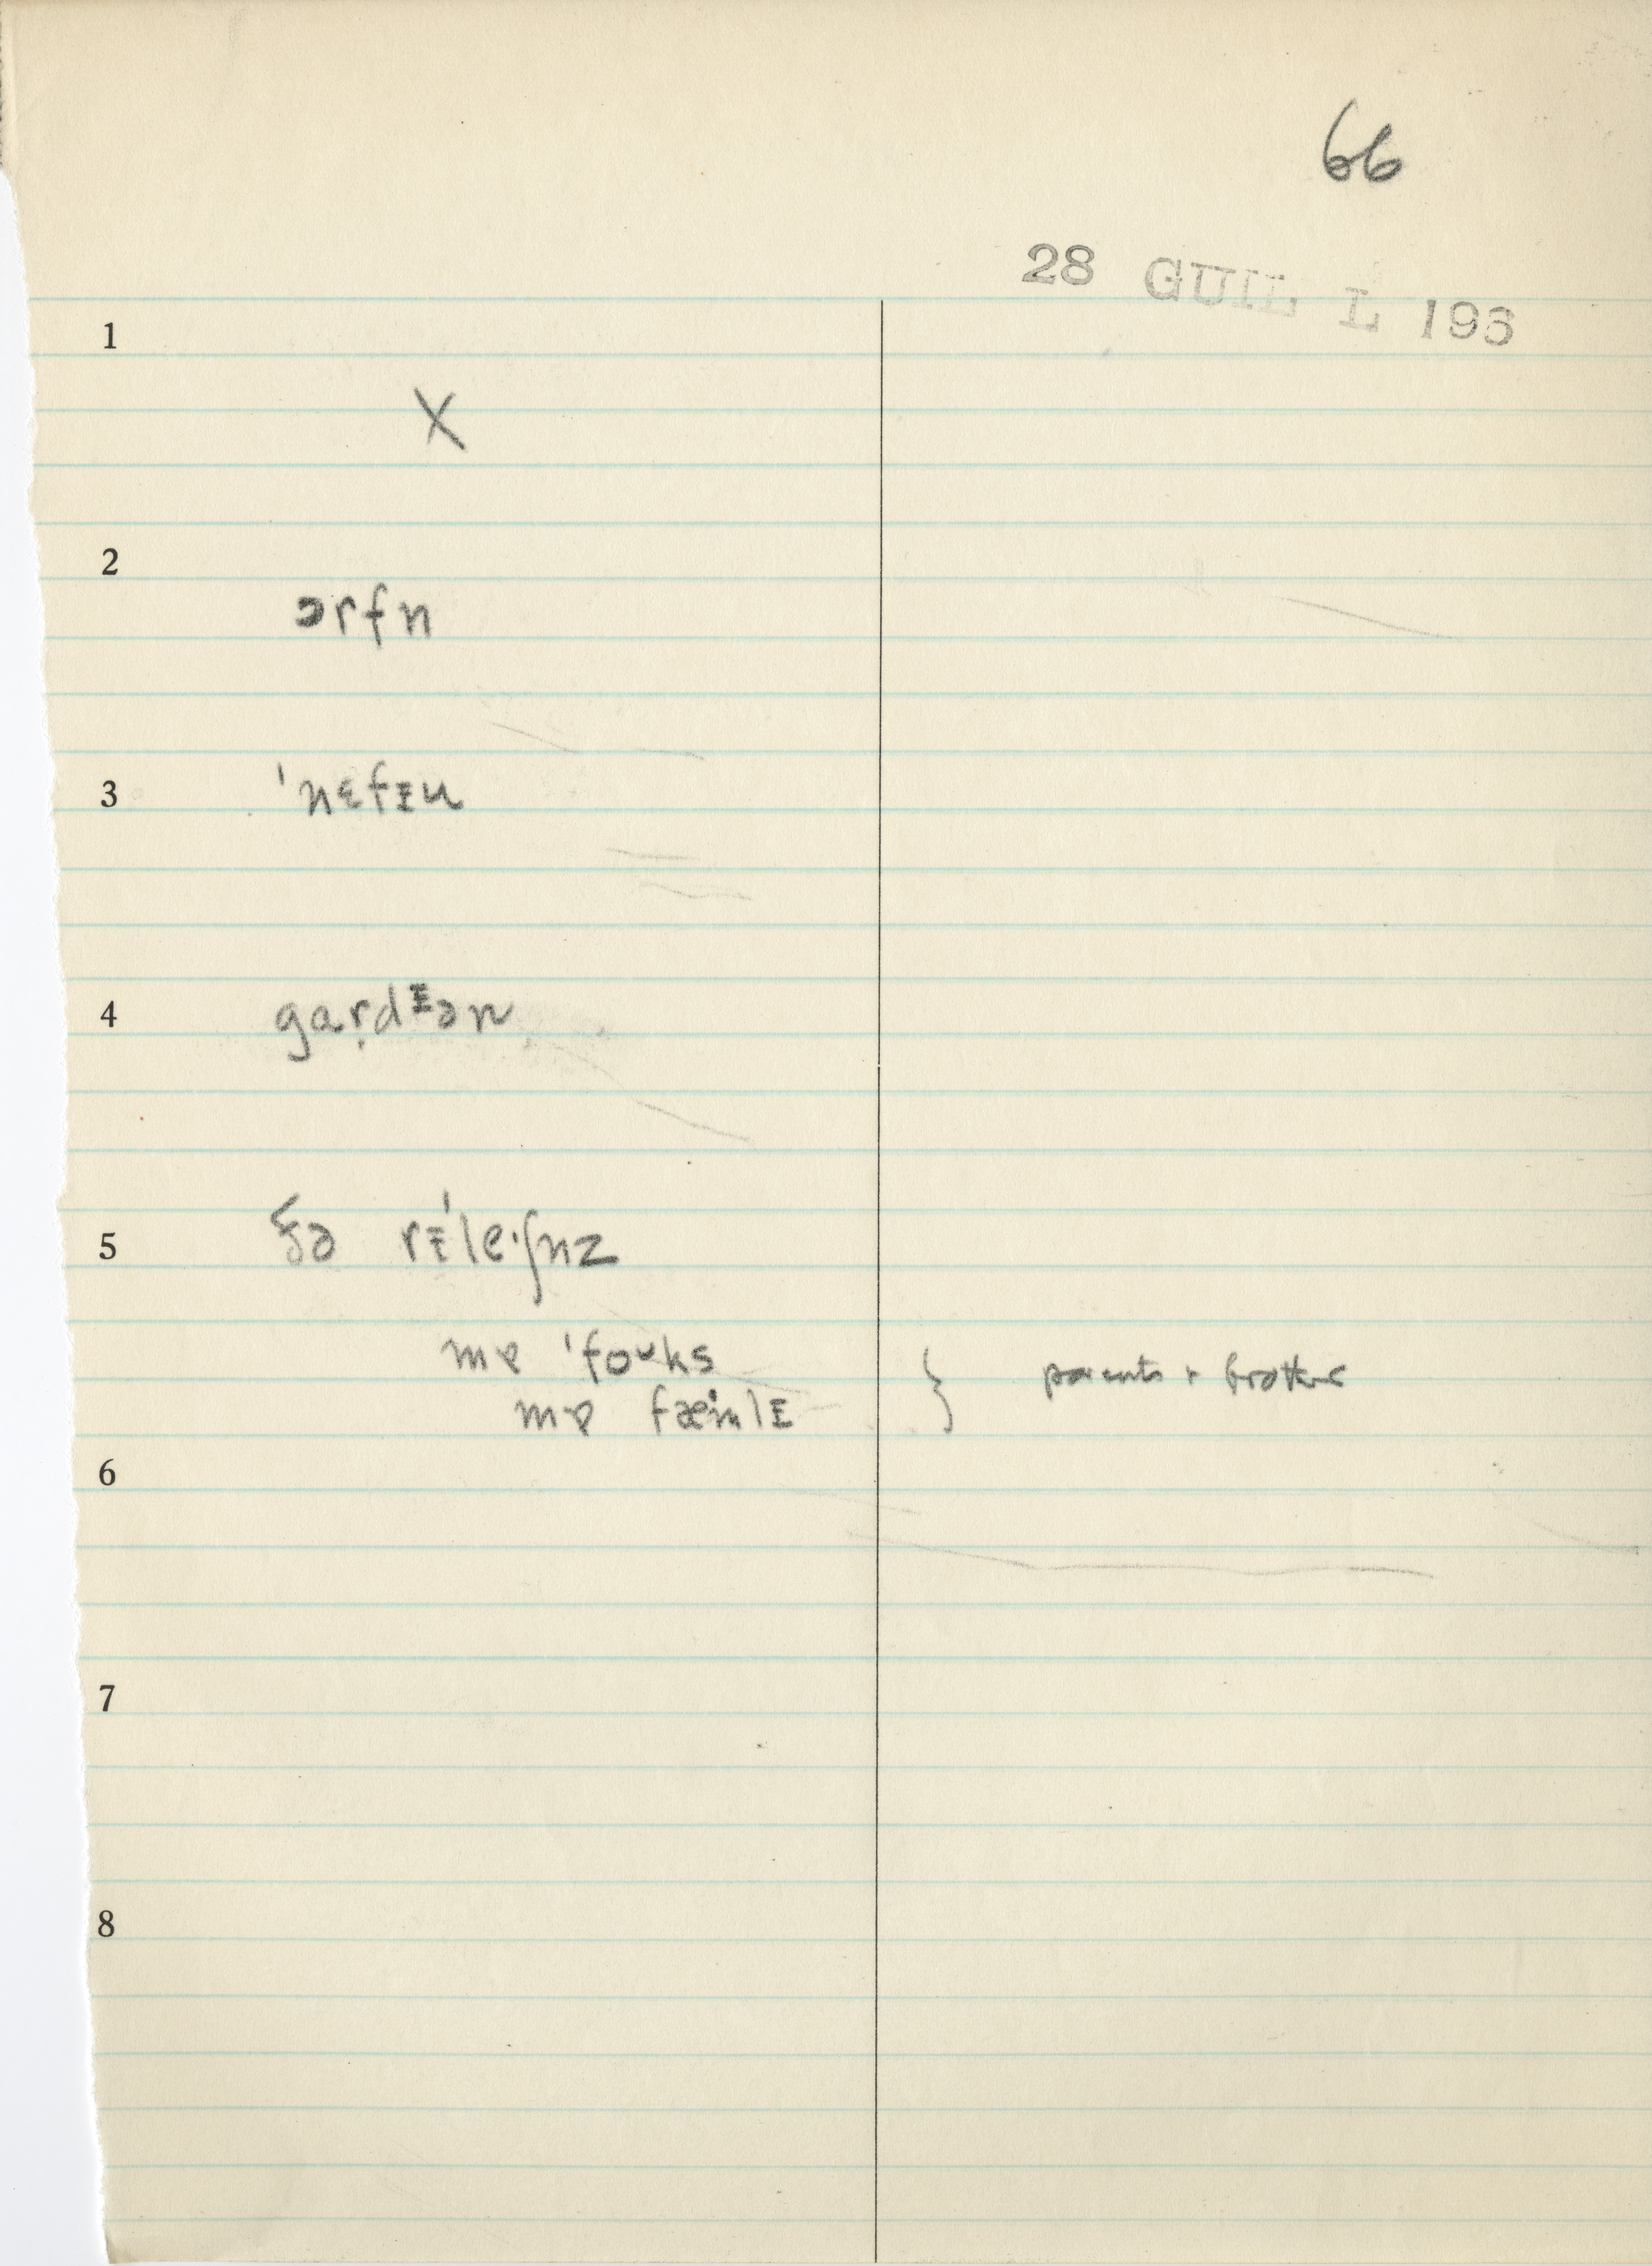 66
28 GUIL L 193
1
X
2
ɔrfn
3
ˈnɛfɪu
4
gaṛdᶦən
5
ðə rɪˈleˑʃnz
mɐ ˈfoᴜks
mɐ fæmlɪ } parents + brother
6
7
8